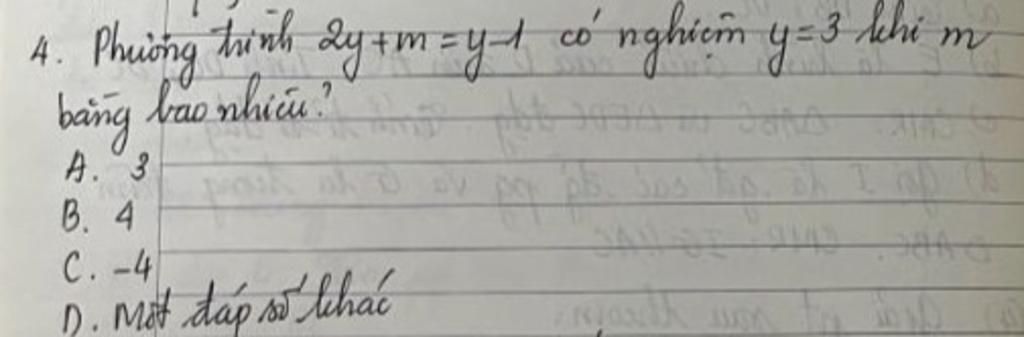 4. Phương trình 2y+m=y-1 có nghiệm y=3 khi m
bằng bao nhiêu?
A. 3
B. 4
C. -4
D. Một đáp số khác